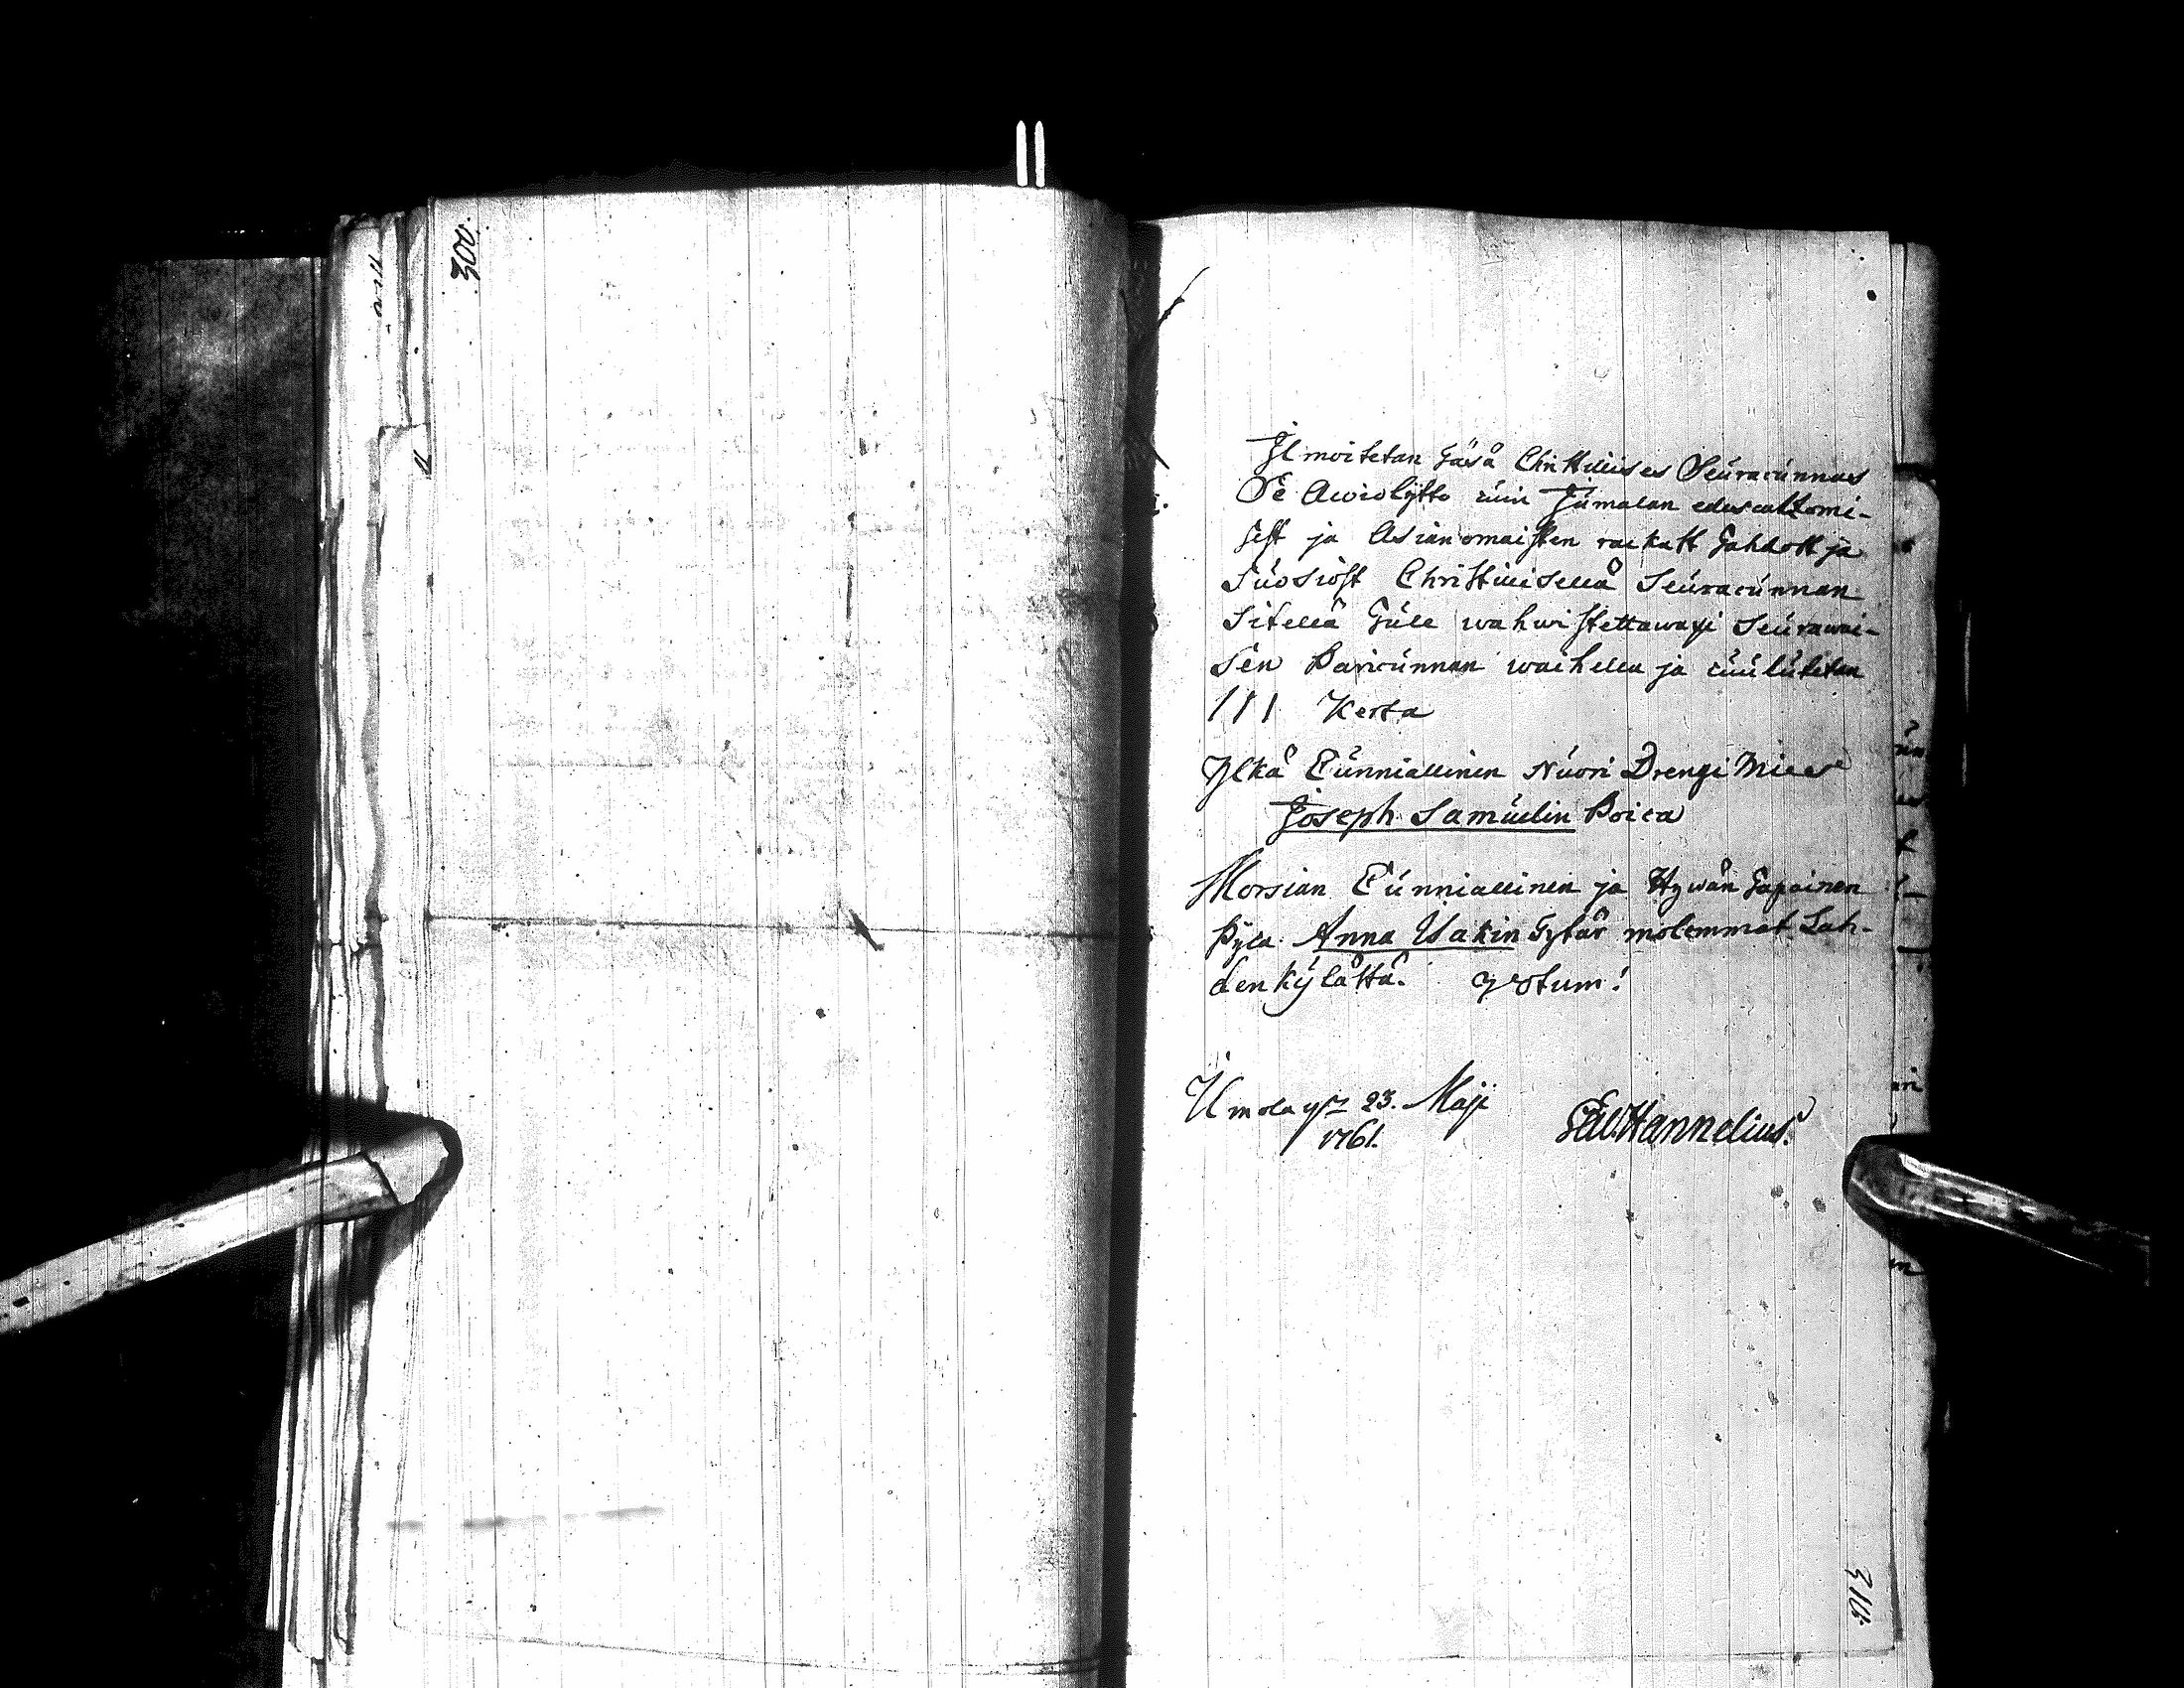 300.
Jlmoitetan Täsä Christillises Seuracunnas
Se Awiolijtto cuin Jumalan edescattomi-
sest ja Asianomaisten rackatt Tahdost ja
Suosiost Christilisellä Seuracunnan
Sitellä Tule wahwistettawaxi Seurawai-
sen Paricunnan waihella ja cuulutetan
1 1 1 Kerta
Ylkä Cunniallinen Nuori Drengi Mies
Joseph Samuelin Poica
Morsian Cunniallinen ja Hywän Tapainen
Pijca Anna Isakin Tytär molemmat Lah-
denkylättä. Votum!
Umola 23. Maji
1761.
Hannelius.
310.